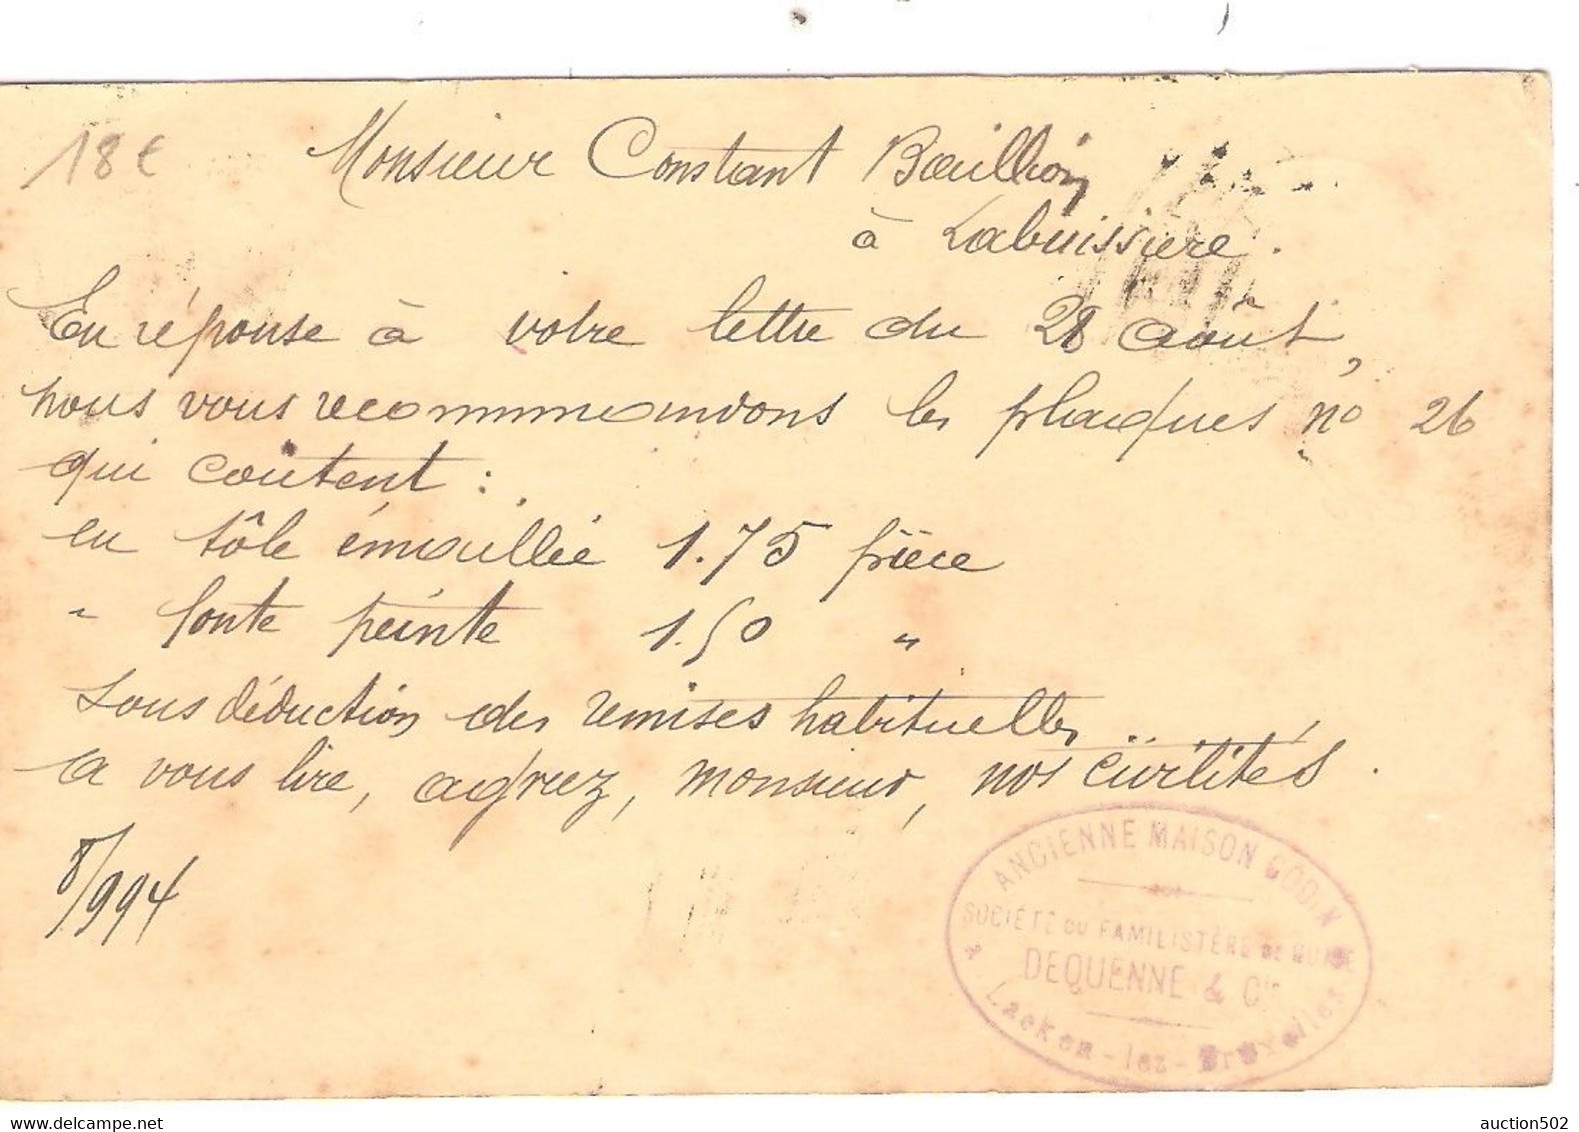 18€
Monsieur Constant Baillion
à Labuissiere.
En réponse à votre lettre du 28 Août,
nous vous recommandons les plaques no 26
qui coutent :
en tôle émaillée 1.75 pièce
" fonte peinte 1.50 "
sous déduction des remises habituelles
A vous lire, agréez, monsieur, nos civilités.
8/994
ANCIENNE MAISON GODIN
SOCIÉTÉ DU FAMILISTÈRE DE GUISE
DEQUENNE & Cie
Laeken-lez-Bruxelles
auction502
www.delcampe.net